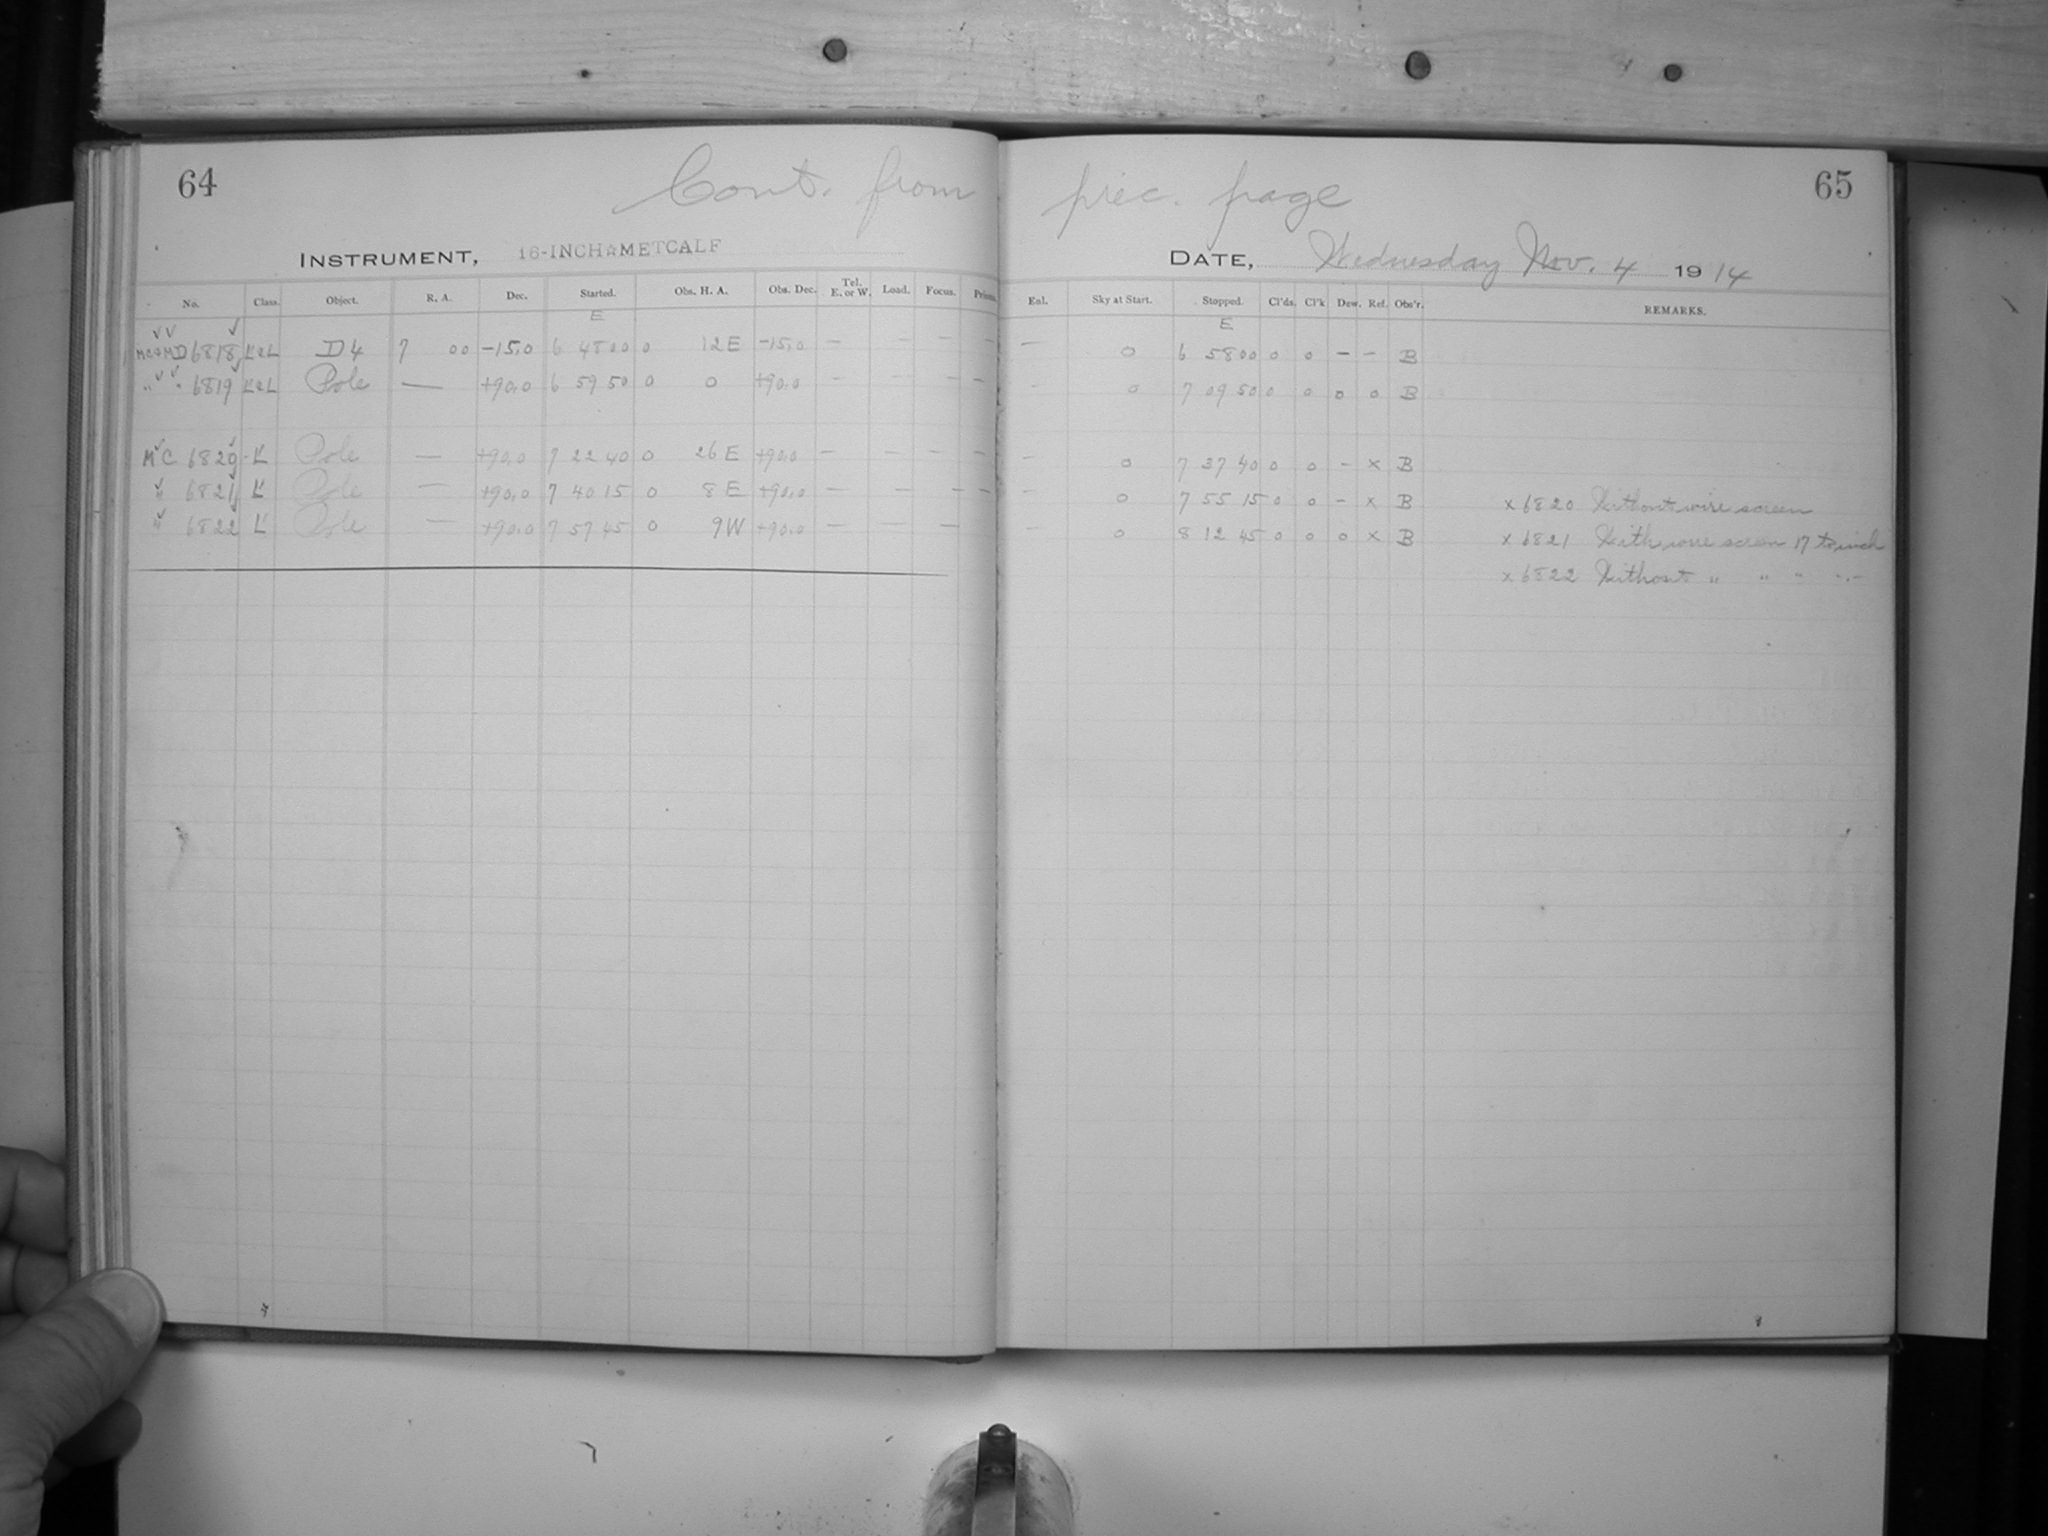 64 Cont. from prec. page 65
INSTRUMENT, 16-INCH☆METCALF DATE, Wednesday Nov. 4 1914
No. Class. Object. R. A. Dec. Started. Obs. H. A. Obs. Dec. Tel. E. or W. Load. Focus. Prisms. Enl. Sky at Start. Stopped. Cl'ds. Cl'k Dew. Ref. Obs'r. REMARKS.
E E
6818 L&L D4 7 00 -15.0 6 48 00 0 12 E -15.0 — — — — — 0 6 58 00 0 0 — — B
" " 6819 L&L Pole — +90.0 6 59 50 0 0 +90.0 — — — — — 0 7 09 50 0 0 0 0 B
MC 6820 L Pole — +90.0 7 22 40 0 26 E +90.0 — — — — — 0 7 37 40 0 0 — x B
" 6821 L Pole — +90.0 7 40 15 0 8 E +90.0 — — — — — — 0 7 55 15 0 0 — x B x 6820 Without wire screen
" 6822 L Pole — +90.0 7 57 45 0 9 W +90.0 — — — — — 0 8 12 45 0 0 0 x B x 6821 With wire screen 17 to inch
x 6822 Without " " " " "